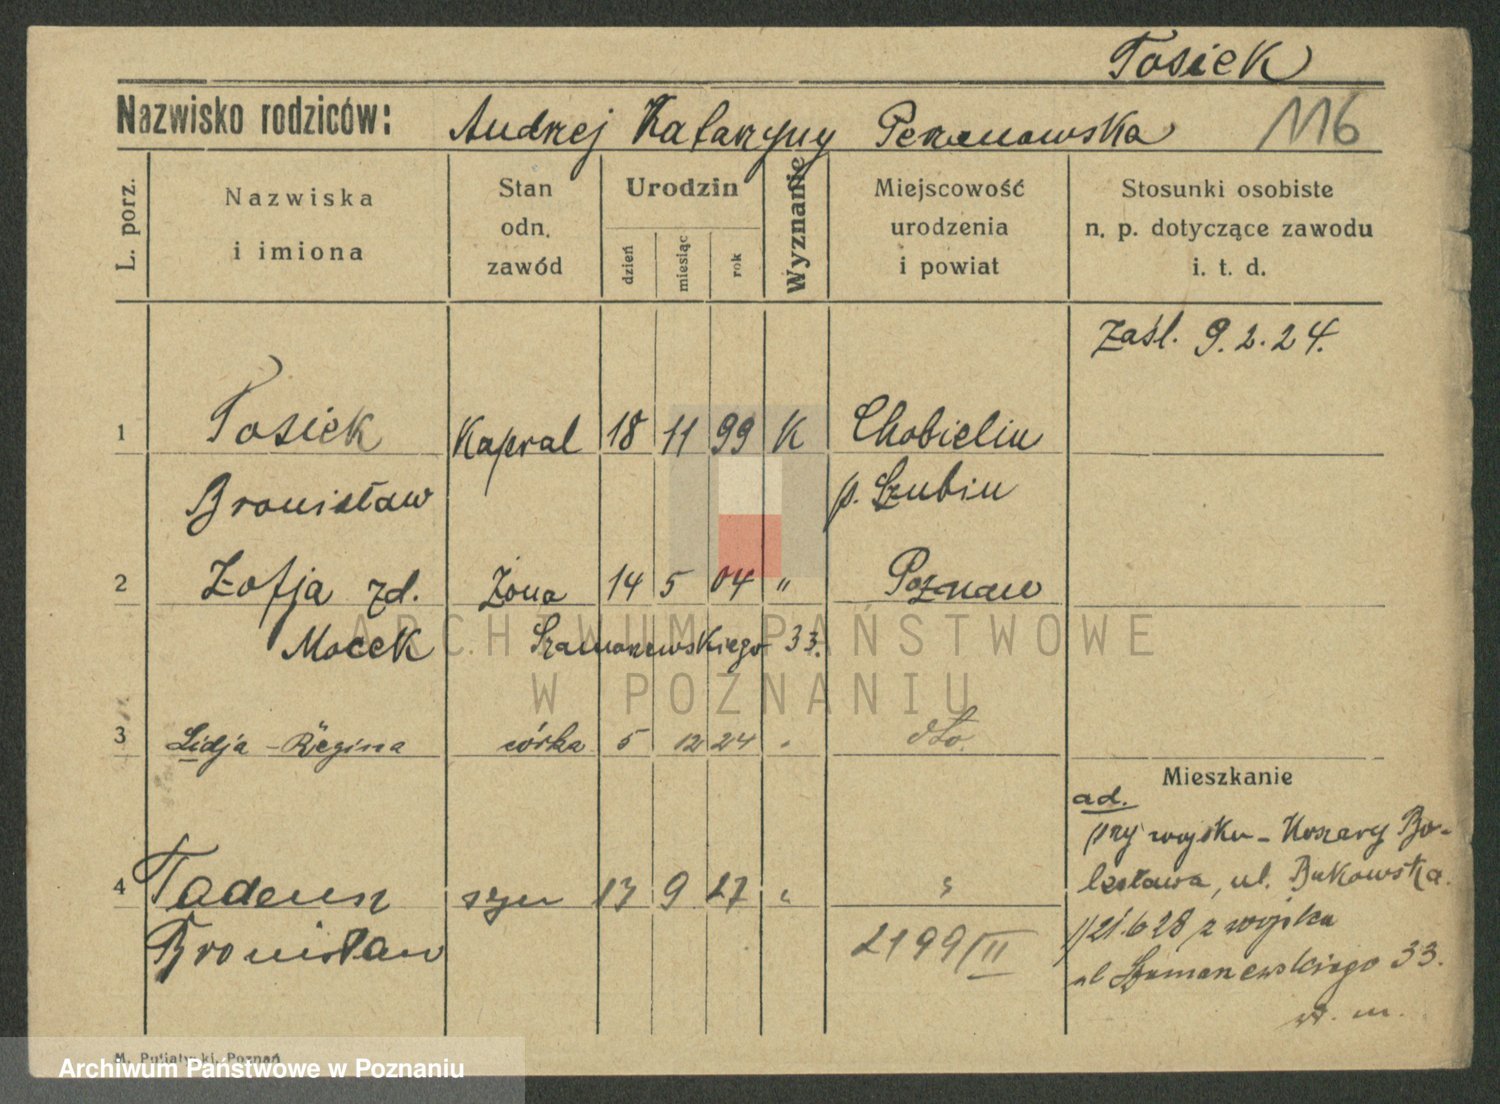 Tosiek
Nazwisko rodziców: Andrzej Katarzyny Peranowska 116
L. porz.
Nazwiska i imiona
Stan odn. zawód
Urodzin
dzień miesiąc rok
Wyznanie
Miejscowość urodzenia i powiat
Stosunki osobiste n. p. dotyczące zawodu i. t. d.
Zaśl. 9.2.24.
1 Tosiek Kapral 18 11 99 K Chobielin
Bronisław p. Szubin
2 Zofja zd. Żona 14 5 04 " Poznaw
Mocek Szamarzewskiego 33.
3 Lidja - Regina córka 5 12 24 " dto.
Mieszkanie
ad.
przy wojsku - Koszary Bo-
4 Tadeusz syn 13 9 27 "
lesława, ul. Bukowska.
Bronisław 2199/II
1) 21.6 28 z wojska
ul Szamarzewskiego 33.
w. m.
M. Putiatycki, Poznań
ARCHIWUM PAŃSTWOWE
W POZNANIU
Archiwum Państwowe w Poznaniu